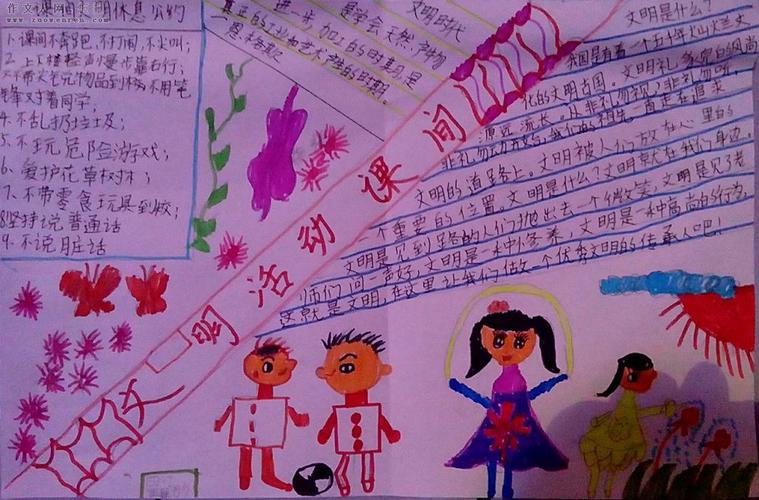 作文网
www.zuowenren.com
课间文明休息公约
1.课间不奔跑,不打闹,不尖叫;
2.上下楼轻声慢步靠右行;
锋对着同学,
4.不乱扔垃圾;
5.不玩危险游戏;
6、爱护花草树木;
7、不带零食玩具到校;
8坚持说普通话
9.不说脏话
文明时代
是学会天然产物
进一步加工的时期,是
真正的工业和艺术产生的时期。
恩格斯
文明活动课间
文明是什么?
我国是有着一个五千年
化的文明古国。文明礼
源远流长。从非礼勿视,非礼勿听,
非礼勿动开始,我们的祖先一直走在追求
文明的道路上。文明被人们放在心里的
一个重要的位置。文明是什么?文明就在我们身边。
文明是见到路的人们抛出去一个微笑,文明是见了老
师们问一声好,文明是一种修养,文明是一种高尚的行为,
这就是文明,在这里让我们做一个优秀文明的传承人吧!